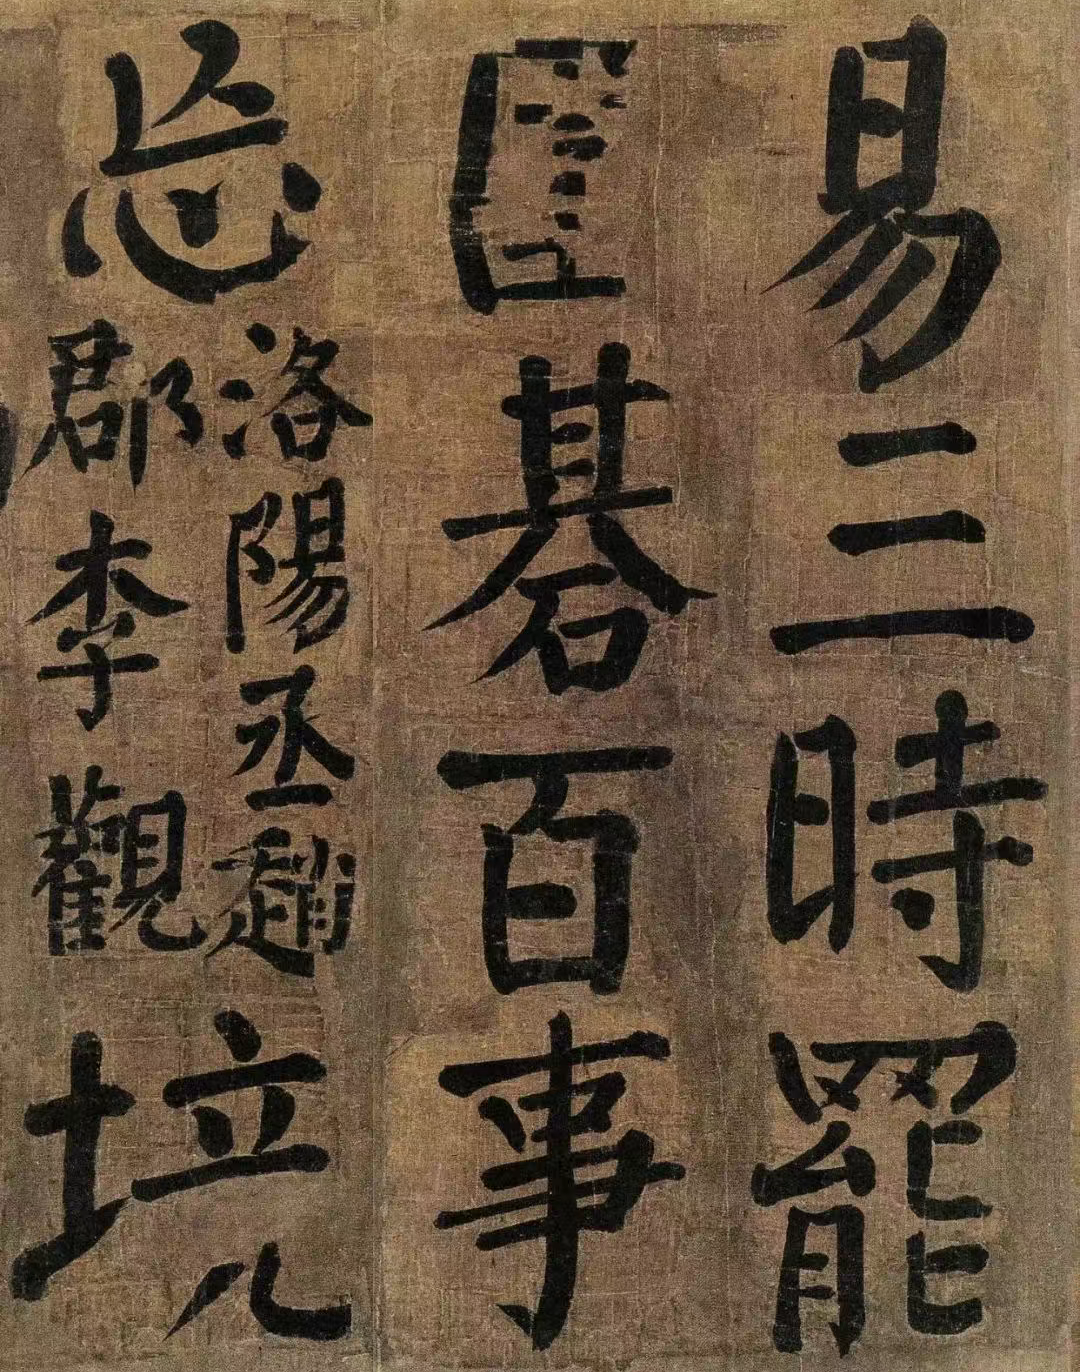 易三時罷
圍碁百事
忘
洛陽丞趙
郡李觀